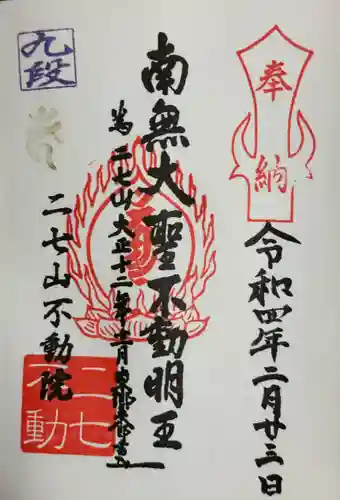 奉納
令和四年二月廿三日
南無大聖不動明王
二七山大正十二年
二七山不動院
九段
二七不動